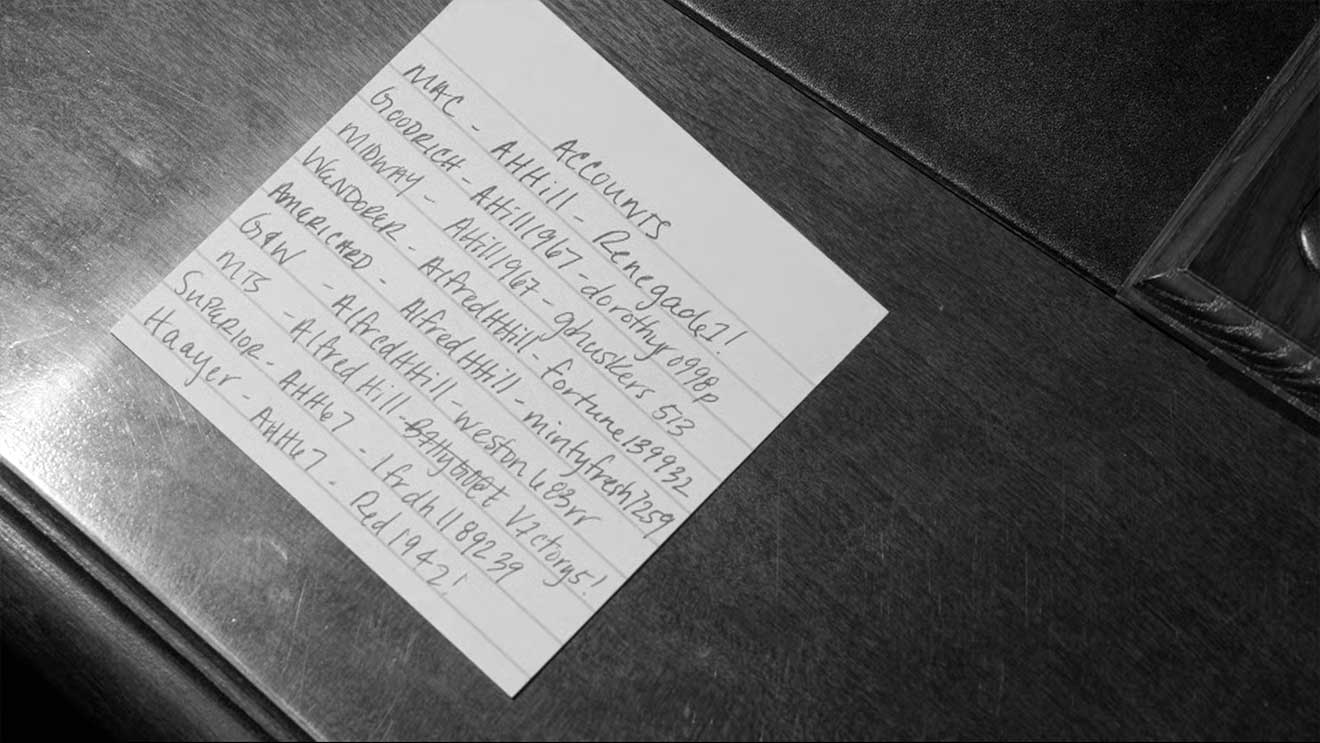 ACCOUNTS
MAC - AHHill - Renegade1!
GOODRICH - AHill1967 - dorothy0998p
MIDWAY - AHill1967 - gohuskers 513
WENDORER - AlfredHHill - fortune139932
AMERICARD - AlfredHHill - mintyfresh7259
G&W - AlfredHHill - weston683rr
MTS - Alfred Hill - V7ctory5!
SUPERIOR - AHH67 - lfrdh1189239
Haayer - AHH67 - Red1942!